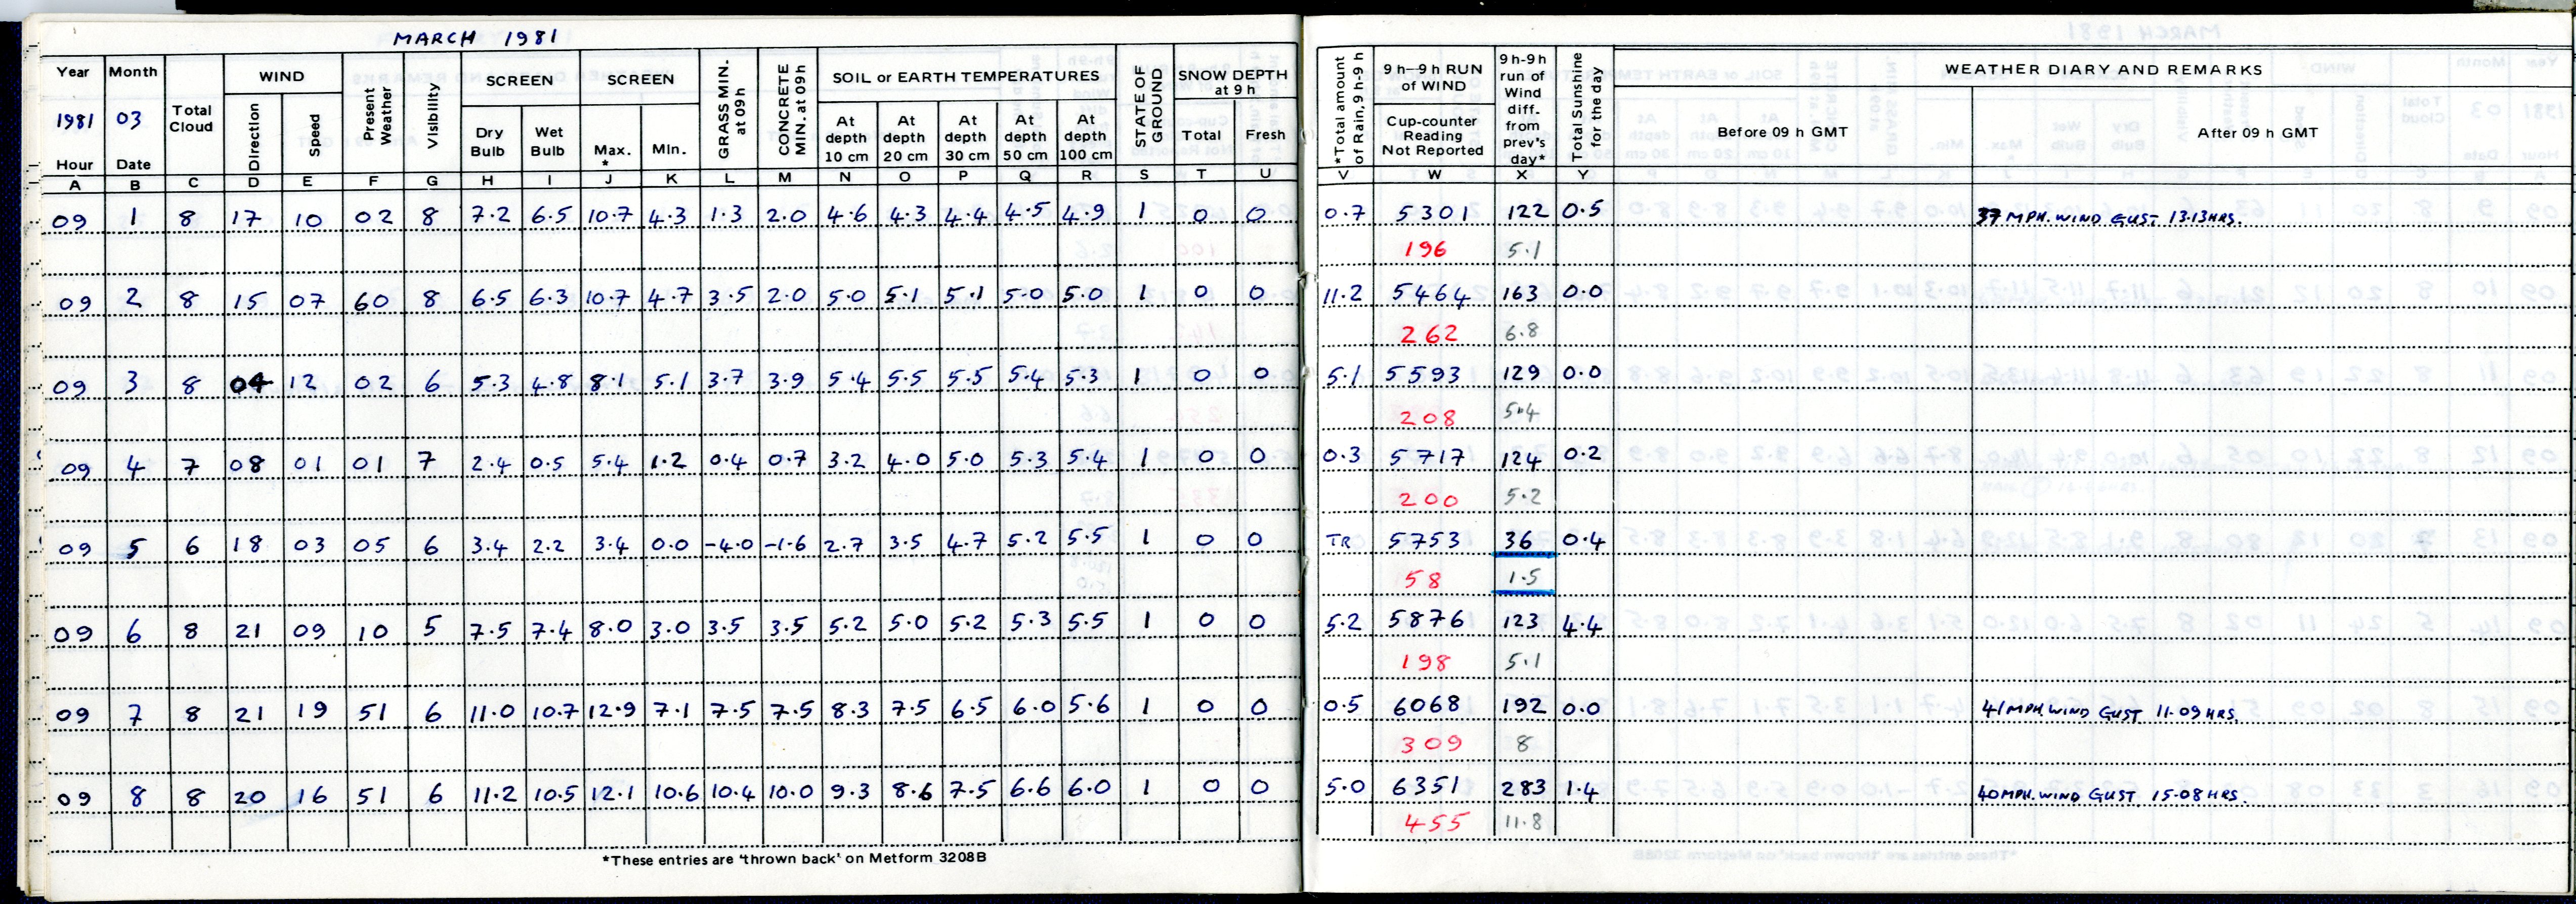 MARCH 1981
Year Month Total Cloud WIND Present Weather Visibility SCREEN SCREEN GRASS MIN. at 09h CONCRETE MIN. at 09h SOIL or EARTH TEMPERATURES STATE OF GROUND SNOW DEPTH at 9 h *Total amount of Rain, 9 h-9 h 9 h–9 h RUN of WIND 9 h-9 h run of Wind diff. from prev's day* Total Sunshine for the day WEATHER DIARY AND REMARKS
1981 03 Direction Speed Dry Bulb Wet Bulb Max. * Min. At depth 10 cm At depth 20 cm At depth 30 cm At depth 50 cm At depth 100 cm Total Fresh Cup-counter Reading Not Reported Before 09 h GMT After 09 h GMT
Hour Date
A B C D E F G H I J K L M N O P Q R S T U V W X Y
09 1 8 17 10 02 8 7.2 6.5 10.7 4.3 1.3 2.0 4.6 4.3 4.4 4.5 4.9 1 0 0 0.7 5301 122 0.5 37 MPH. WIND GUST 13.13HRS.
196 5.1
09 2 8 15 07 60 8 6.5 6.3 10.7 4.7 3.5 2.0 5.0 5.1 5.1 5.0 5.0 1 0 0 11.2 5464 163 0.0
262 6.8
09 3 8 04 12 02 6 5.3 4.8 8.1 5.1 3.7 3.9 5.4 5.5 5.5 5.4 5.3 1 0 0 5.1 5593 129 0.0
208 5.4
09 4 7 08 01 01 7 2.4 0.5 5.4 1.2 0.4 0.7 3.2 4.0 5.0 5.3 5.4 1 0 0 0.3 5717 124 0.2
200 5.2
09 5 6 18 03 05 6 3.4 2.2 3.4 0.0 -4.0 -1.6 2.7 3.5 4.7 5.2 5.5 1 0 0 TR 5753 36 0.4
58 1.5
09 6 8 21 09 10 5 7.5 7.4 8.0 3.0 3.5 3.5 5.2 5.0 5.2 5.3 5.5 1 0 0 5.2 5876 123 4.4
198 5.1
09 7 8 21 19 51 6 11.0 10.7 12.9 7.1 7.5 7.5 8.3 7.5 6.5 6.0 5.6 1 0 0 0.5 6068 192 0.0 41MPH.WIND GUST 11.09HRS.
309 8
09 8 8 20 16 51 6 11.2 10.5 12.1 10.6 10.4 10.0 9.3 8.6 7.5 6.6 6.0 1 0 0 5.0 6351 283 1.4 40MPH.WIND GUST 15.08HRS.
455 11.8
*These entries are 'thrown back' on Metform 3208B